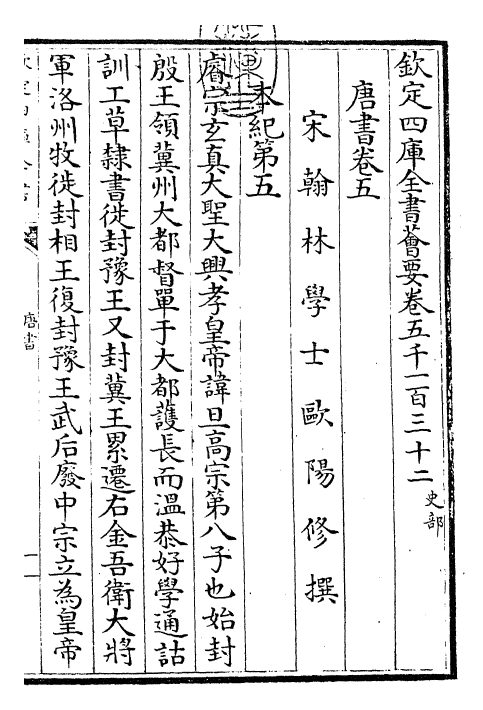 欽定四庫全書薈要卷五千一百三十二史部
唐書卷五
宋翰林學士歐陽修撰
本紀第五
睿宗玄真大聖大興孝皇帝諱旦高宗第八子也始封
殷王領冀州大都督單于大都護長而溫恭好學通詁
訓工草隸書徙封豫王又封冀王累遷右金吾衛大將
軍洛州牧徙封相王復封豫王武后廢中宗立為皇帝
唐書
一